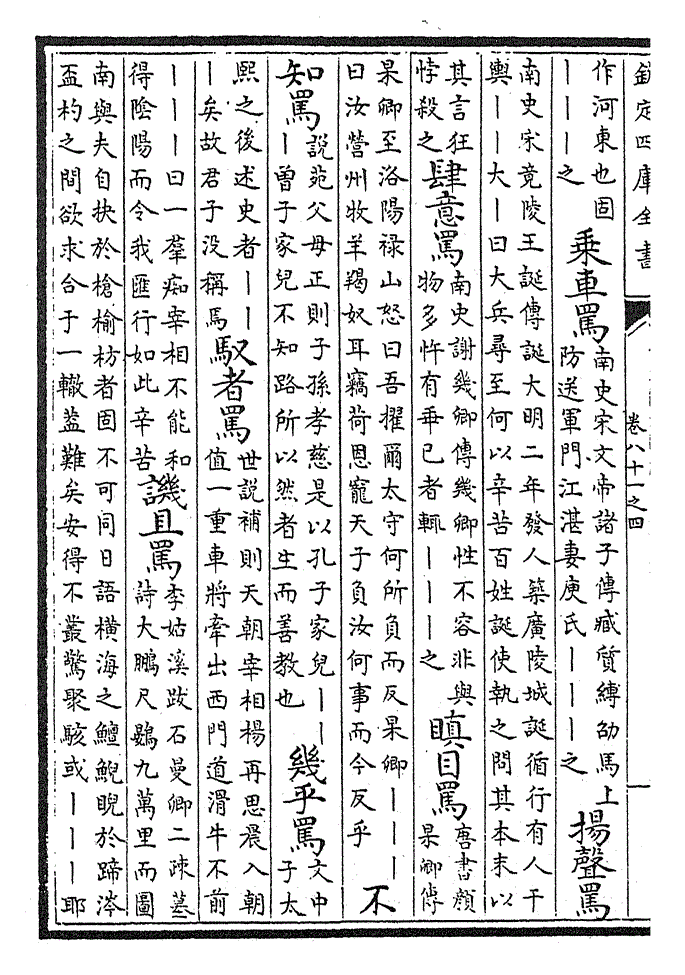 欽定四庫全書
卷八十一之四
一
作河東也固
｜｜｜之
乘車罵
南史宋文帝諸子傳臧質縛劭馬上
防送軍門江湛妻庾氏｜｜｜之
揚聲罵
南史宋竟陵王誕傳誕大明二年發人築廣陵城誕循行有人干
輿｜｜大｜曰大兵尋至何以辛苦百姓誕使執之問其本末以
其言狂
悖殺之
肆意罵
南史謝幾卿傳幾卿性不容非與
物多忤有乖已者輒｜｜｜之
瞋目罵
唐書顔
杲卿傳
杲卿至洛陽祿山怒曰吾擢爾太守何所負而反杲卿｜｜｜
曰汝營州牧羊羯奴耳竊荷恩寵天子負汝何事而今反乎
不
知罵
說苑父母正則子孫孝慈是以孔子家兒｜｜
｜曾子家兒不知路所以然者生而善教也
幾乎罵
文中
子太
熙之後述史者｜｜
｜矣故君子没稱焉
馭者罵
世說補則天朝宰相楊再思晨入朝
值一重車將牽出西門道滑牛不前
｜｜｜曰一羣痴宰相不能和
得陰陽而令我匯行如此辛苦
譏且罵
李姑溪跋石曼卿二疎墓
詩大鵬尺鷃九萬里而圖
南與夫自抉於槍榆枋者固不可同日語横海之鱣鯢睨於蹄涔
盃杓之間欲求合于一轍葢難矣安得不叢驚聚駭或｜｜｜耶